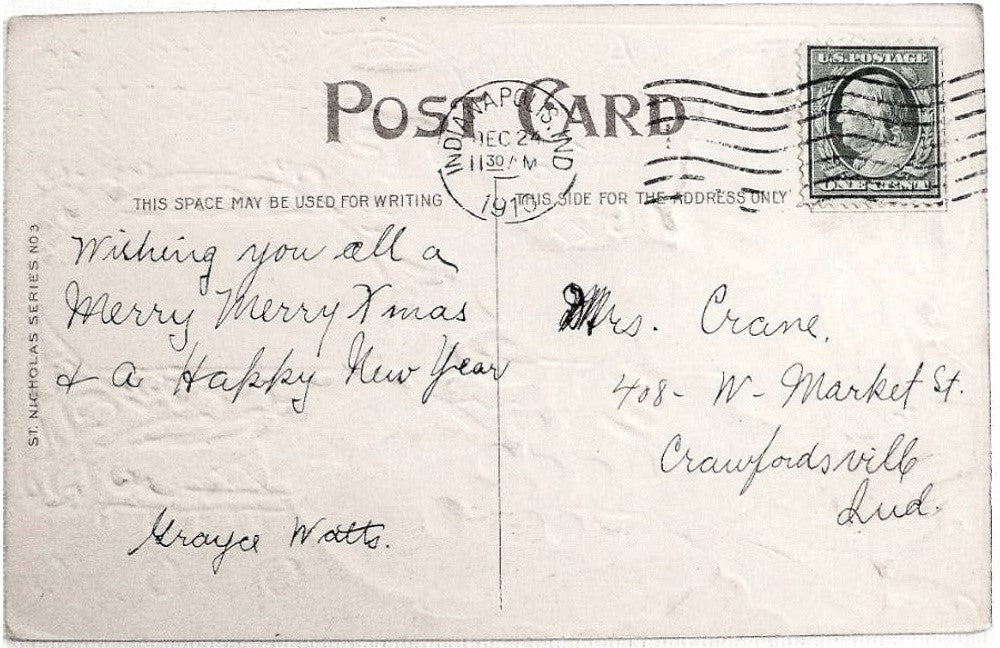 POST CARD
INDIANAPOLIS. IND
DEC 24
11 30 A M
191
U.S. POSTAGE
ONE CENT
THIS SPACE MAY BE USED FOR WRITING
THIS SIDE FOR THE ADDRESS ONLY
ST. NICHOLAS SERIES NO 3
Wishing you all a
Merry Merry Xmas
& A Happy New Year
Grayce Watts.
Mrs. Crane,
408 - W - Market St.
Crawfordsville
Ind.